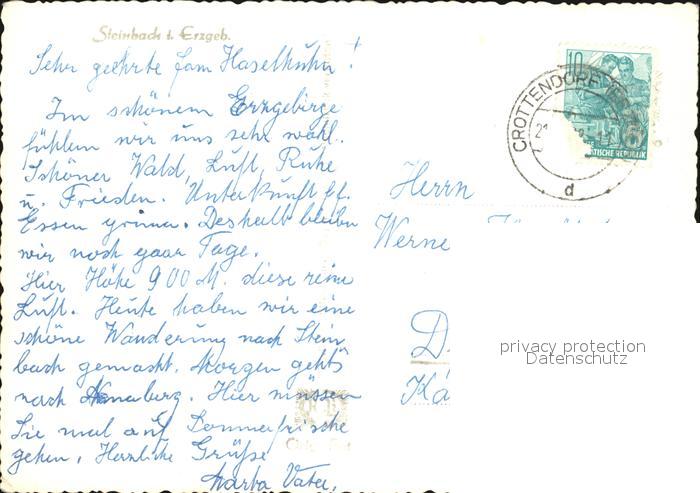 Steinbach i. Erzgeb.
Sehr geehrte Fam Haselhuhn!
Im schönem Erzgebirge
fühlen wir uns sehr wohl.
Schöner Wald, Luft, Ruhe
u. Frieden. Unterkunft ff.
Essen prima. Deshalb bleiben
wir noch paar Tage.
Hier Höhe 900 M. diese reine
Luft. Heute haben wir eine
schöne Wanderung nach Stein
bach gemacht. Morgen gehts
nach Annaberg. Hier müssen
Sie mal auf Sommerfrische
gehen. Herzliche Grüße
10
CROTTENDORF
d
TISCHE REPUBLIK
Herrn
Werne
D
Kä
privacy protection
Datenschutz